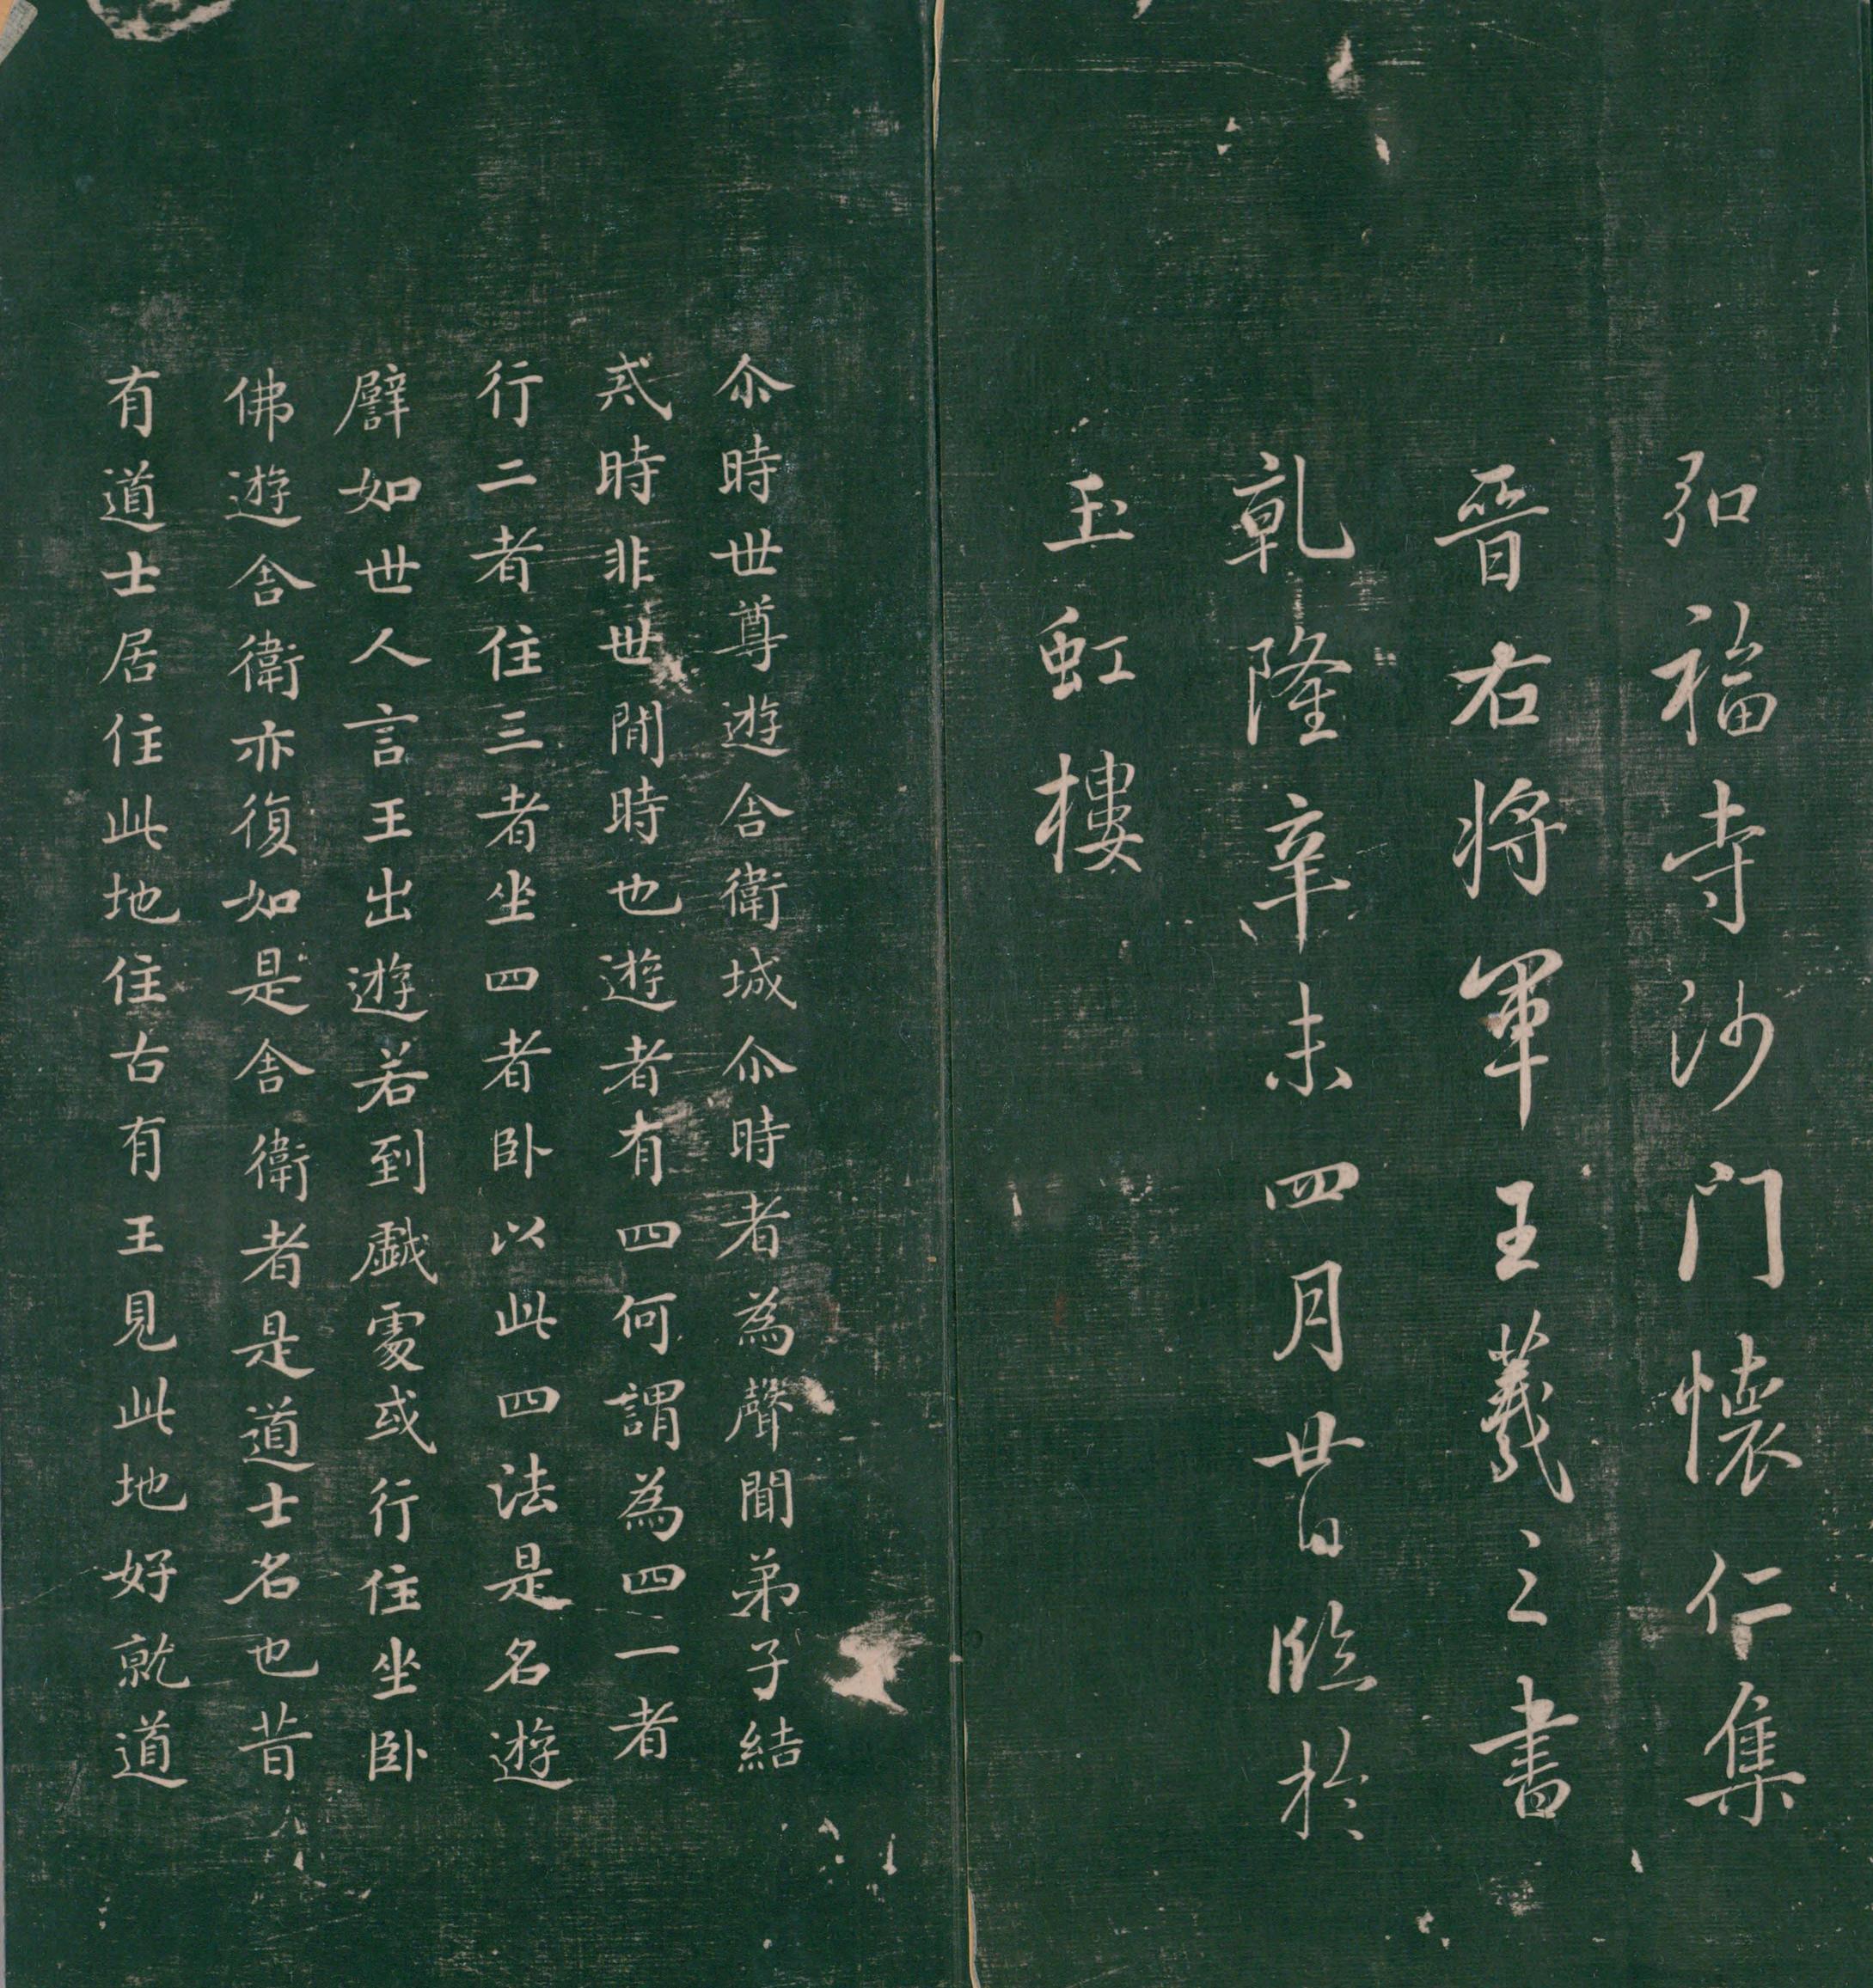 弘福寺沙门懷仁集
晉右將軍王羲之書
乹隆辛未四月廿日臨於
玉虹樓
尒時世尊遊舍衛城尒時者為聲聞弟子結
戒時非世間時也遊者有四何謂為四一者
行二者住三者坐四者卧以此四法是名遊
譬如世人言王出遊若到戱處或行住坐卧
佛遊舍衛亦復如是舍衛者是道士名也昔
有道士居住此地住古有王見此地好就道